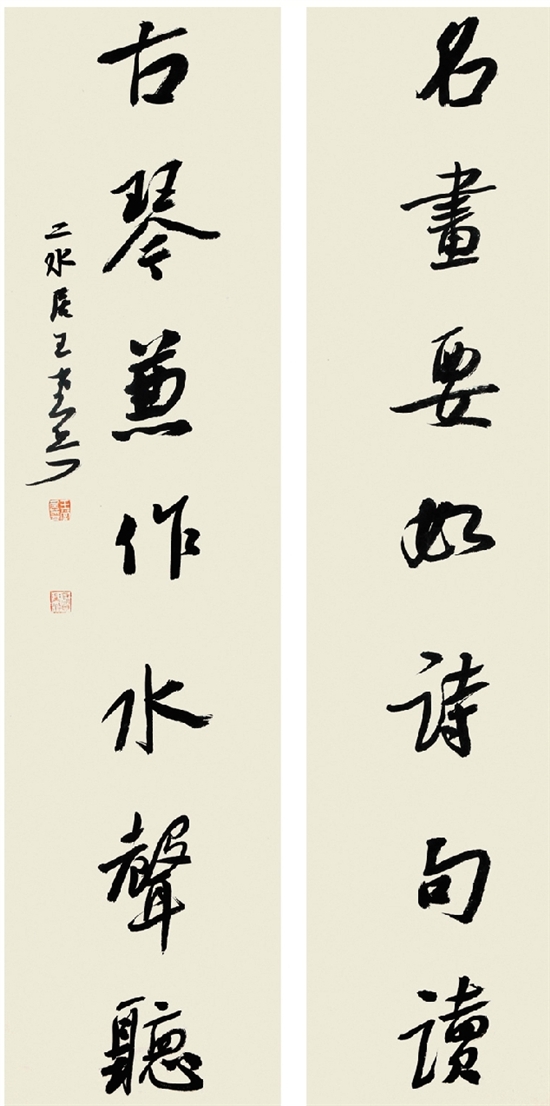 名畫要如詩句讀
古琴兼作水聲聽
二水居王